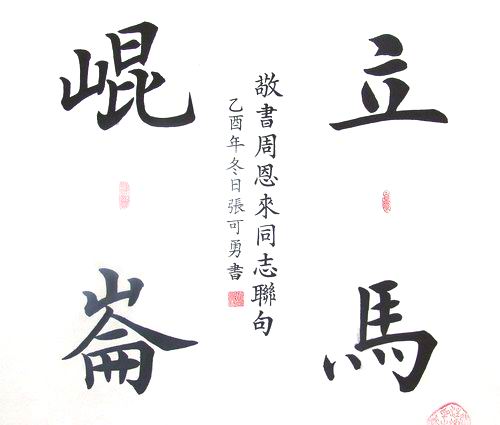 立馬
崐崙
敬書周恩來同志聯句
乙酉年冬日張可勇書